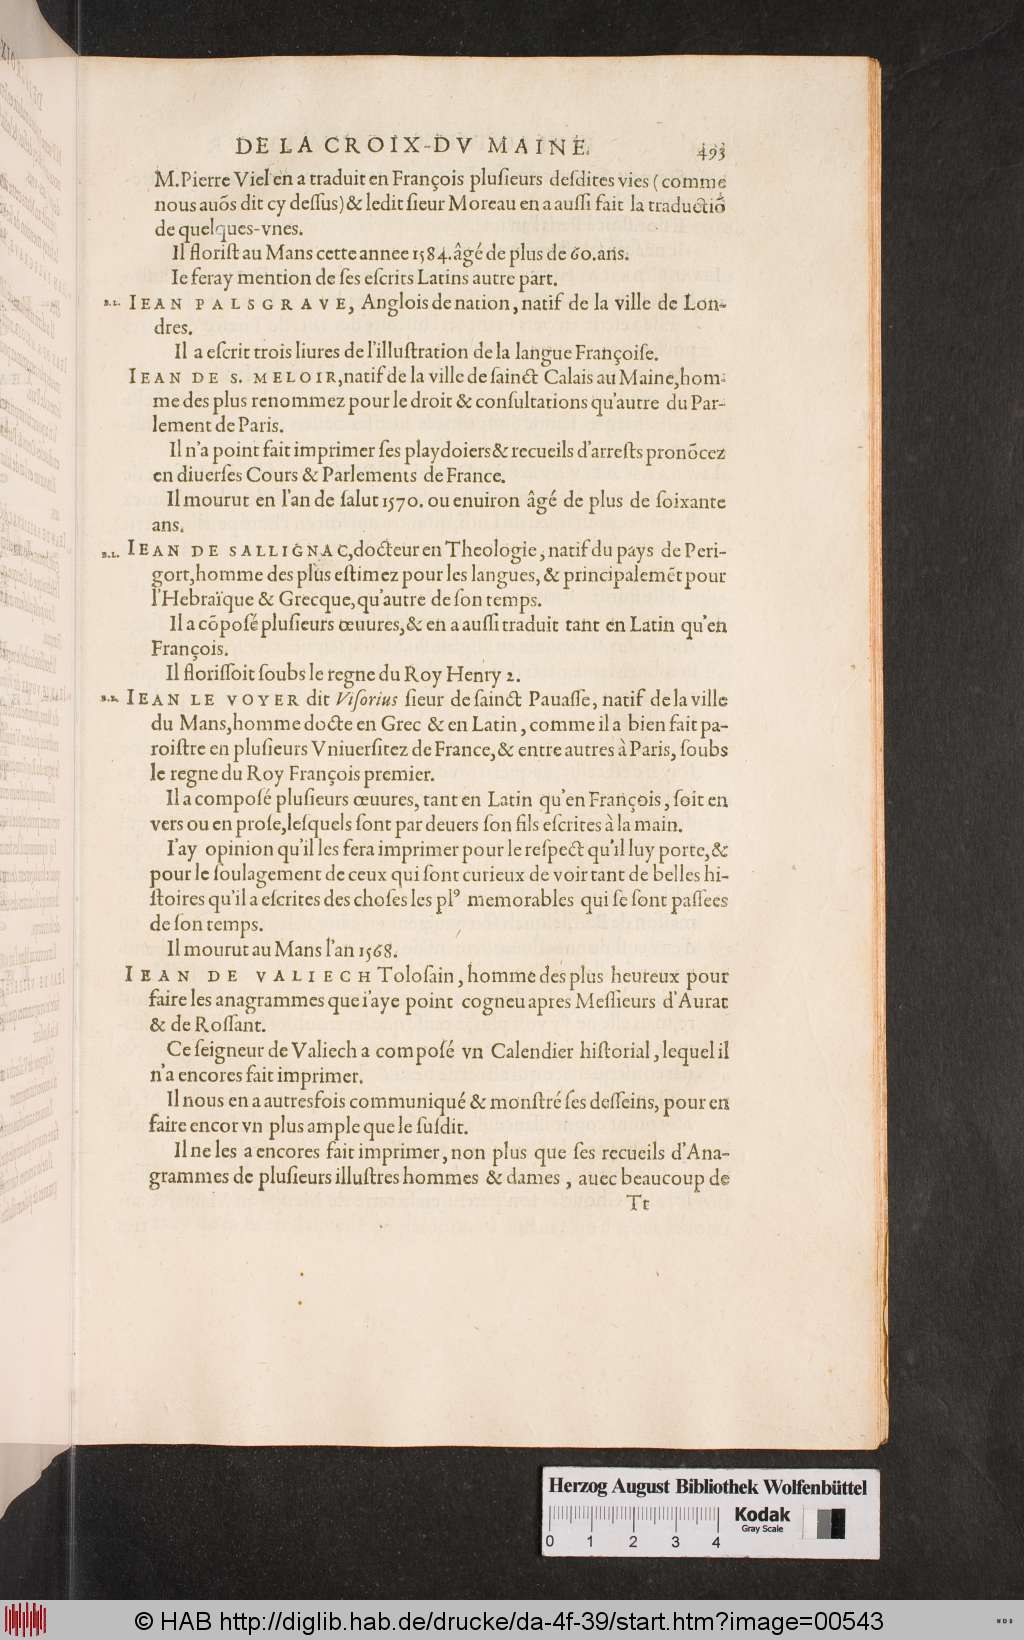 DE LA CROIX-DV MAINE. 493
M. Pierre Viel en a traduit en François pluſieurs deſdites vies (comme
nous auõs dit cy deſſus) & ledit ſieur Moreau en a auſſi fait la traductiõ
de quelques-vnes.
Il floriſt au Mans cette annee 1584. âgé de plus de 60. ans.
Ie feray mention de ſes eſcrits Latins autre part.
B.L. IEAN PALSGRAVE, Anglois de nation, natif de la ville de Lon-
dres.
Il a eſcrit trois liures de l'illuſtration de la langue Françoiſe.
IEAN DE S. MELOIR, natif de la ville de ſainct Calais au Maine, hom-
me des plus renommez pour le droit & conſultations qu'autre du Par-
lement de Paris.
Il n'a point fait imprimer ſes playdoiers & recueils d'arreſts pronõcez
en diuerſes Cours & Parlements de France.
Il mourut en l'an de ſalut 1570. ou enuiron âgé de plus de ſoixante
ans.
B.L. IEAN DE SALLIGNAC, docteur en Theologie, natif du pays de Peri-
gort, homme des plus eſtimez pour les langues, & principalemẽt pour
l'Hebraïque & Grecque, qu'autre de ſon temps.
Il a cõpoſé pluſieurs œuures, & en a auſſi traduit tant en Latin qu'en
François.
Il floriſſoit ſoubs le regne du Roy Henry 2.
IEAN LE VOYER dit Viſorius ſieur de ſainct Pauaſſe, natif de la ville
du Mans, homme docte en Grec & en Latin, comme il a bien fait pa-
roiſtre en pluſieurs Vniuerſitez de France, & entre autres à Paris, ſoubs
le regne du Roy François premier.
Il a compoſé pluſieurs œuures, tant en Latin qu'en François, ſoit en
vers ou en proſe, leſquels ſont par deuers ſon fils eſcrites à la main.
I'ay opinion qu'il les fera imprimer pour le reſpect qu'il luy porte, &
pour le ſoulagement de ceux qui ſont curieux de voir tant de belles hi-
ſtoires qu'il a eſcrites des choſes les plꝰ memorables qui ſe ſont paſſees
de ſon temps.
Il mourut au Mans l'an 1568.
IEAN DE VALIECH Toloſain, homme des plus heureux pour
faire les anagrammes que i'aye point cogneu apres Meſſieurs d'Aurat
& de Roſſant.
Ce ſeigneur de Valiech a compoſé vn Calendier hiſtorial, lequel il
n'a encores fait imprimer.
Il nous en a autresfois communiqué & monſtré ſes deſſeins, pour en
faire encor vn plus ample que le ſuſdit.
Il ne les a encores fait imprimer, non plus que ſes recueils d'Ana-
grammes de pluſieurs illuſtres hommes & dames, auec beaucoup de
Tt
Herzog August Bibliothek Wolfenbüttel
Kodak
Gray Scale
0 1 2 3 4
© HAB http://diglib.hab.de/drucke/da-4f-39/start.htm?image=00543